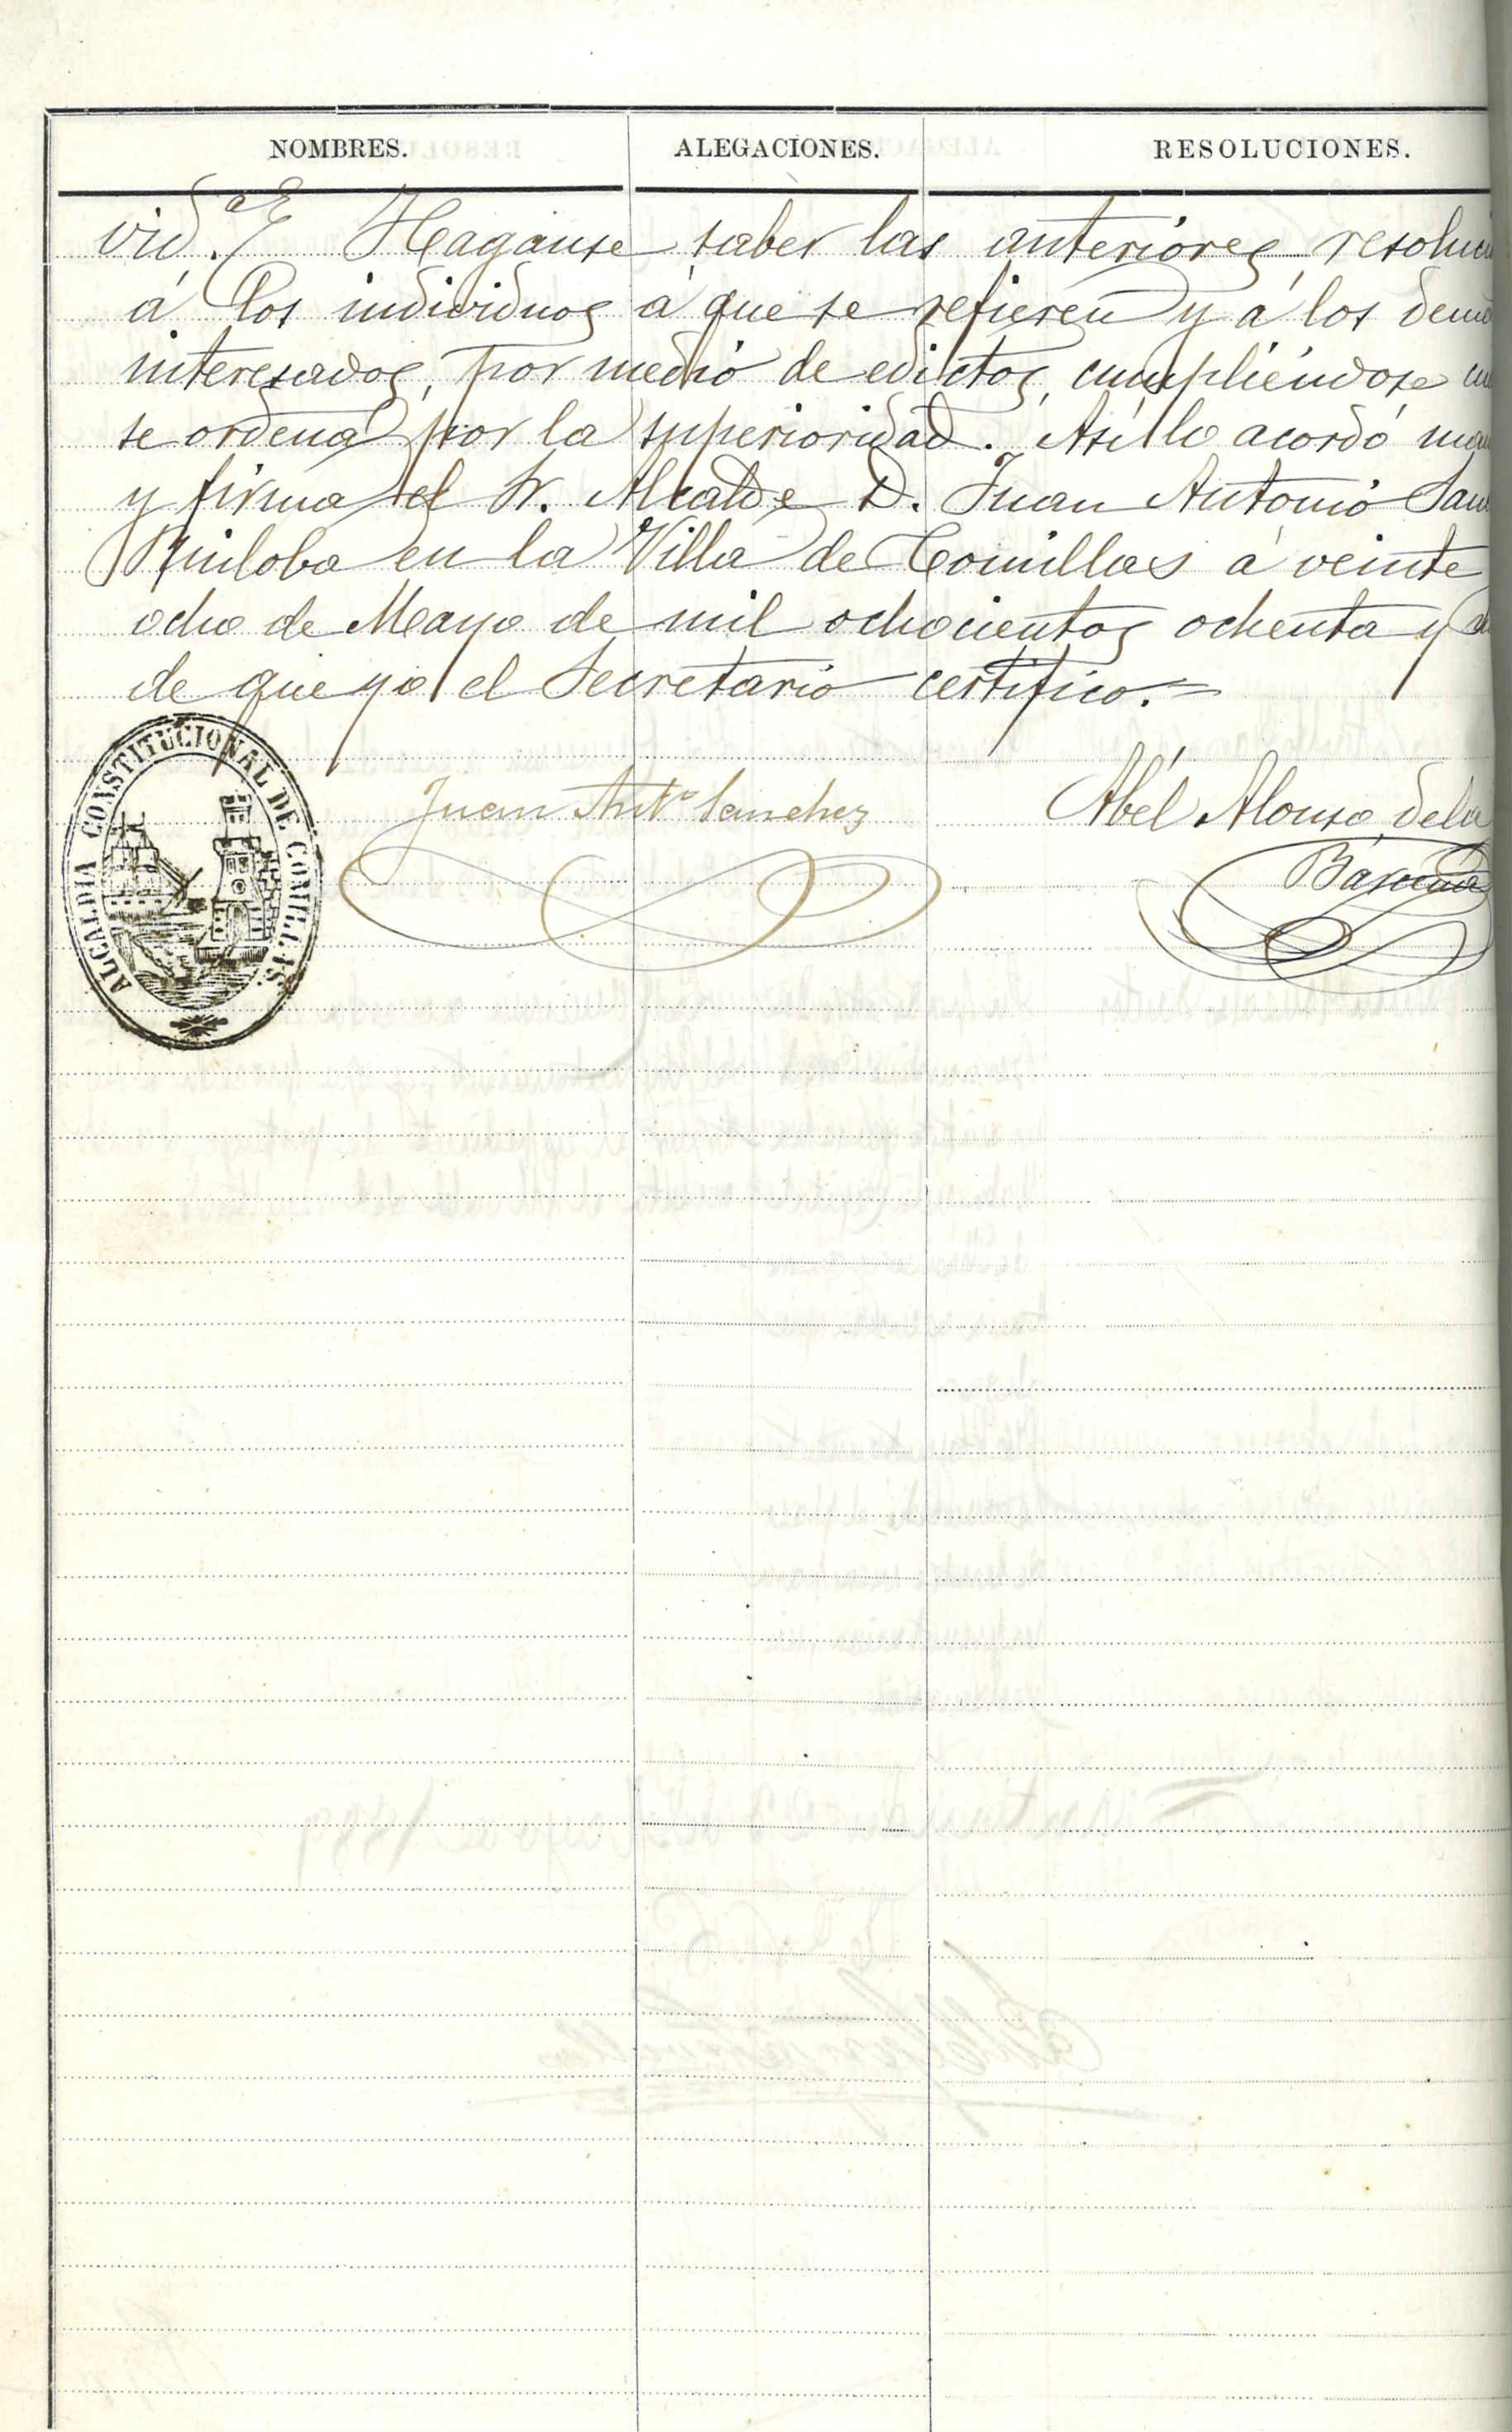 NOMBRES. ALEGACIONES. RESOLUCIONES.
vid.ª Hagánse saber las anteriores resoluci
á los individuos á que se refieren y á los dem
interesados, por medio de edictos, cumpliéndose cu
se ordena por la superioridad. Así lo acordó man
y firma el Sr. Alcalde D. Juan Antonio San
Ruiloba en la Villa de Comillas á veinte
ocho de Mayo de mil ochocientos ochenta y
de que yo el Secretario certifico.=
ALCALDIA CONSTITUCIONAL DE COMILLAS.
Juan Antº Sanchez
Abél Alonso de la
Bárcena